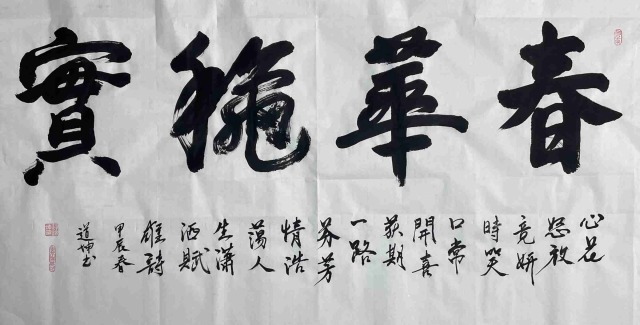 春華穐實
心花
怒放
竟妍
時笑
口常
開喜
獲期
一路
芬芳
情浩
蕩人
生瀟
洒賦
雄詩
甲辰春
道坤书